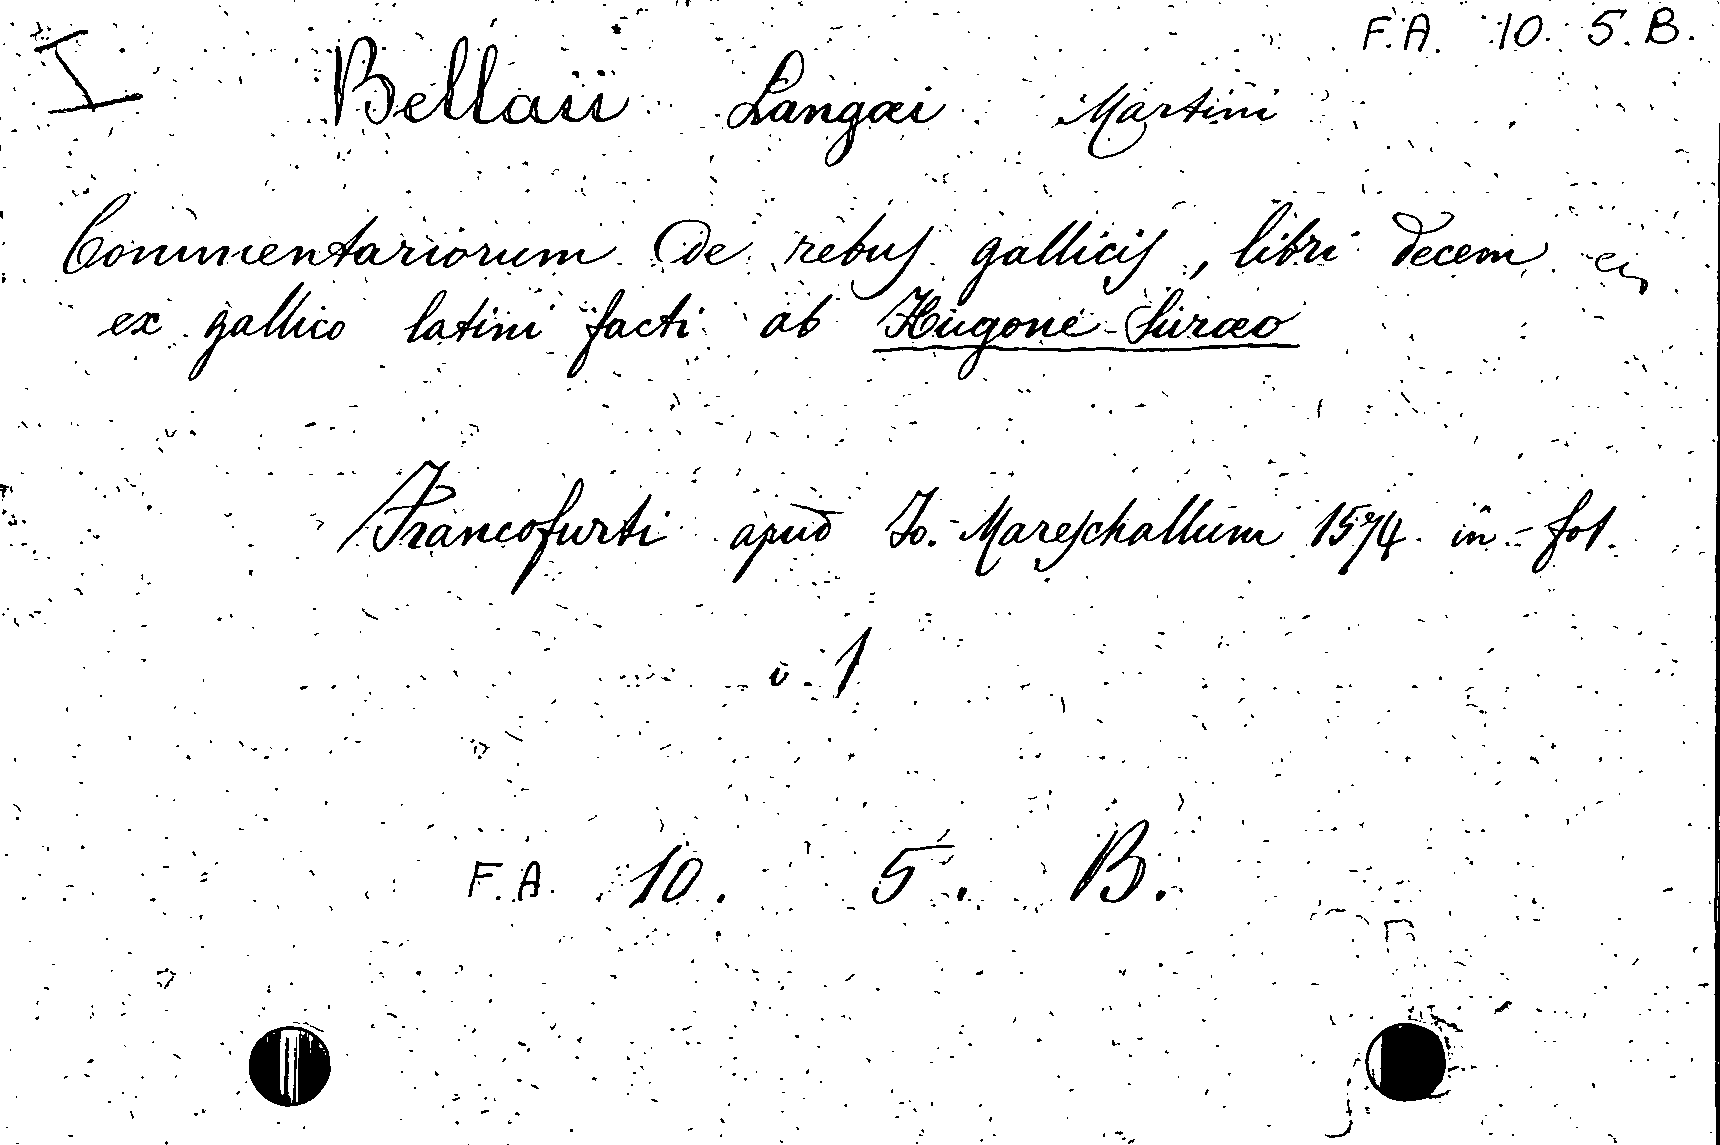 F.A. 10. 5. B.
I Bellaii Langæi Martini
Commentariorum de rebus gallicis, libri decem
ex gallico latini facti ab Hugone Suræo
Francofurti apud Jo. Mareschallum 1574 in-fol.
v. 1
F.A. 10. 5. B.